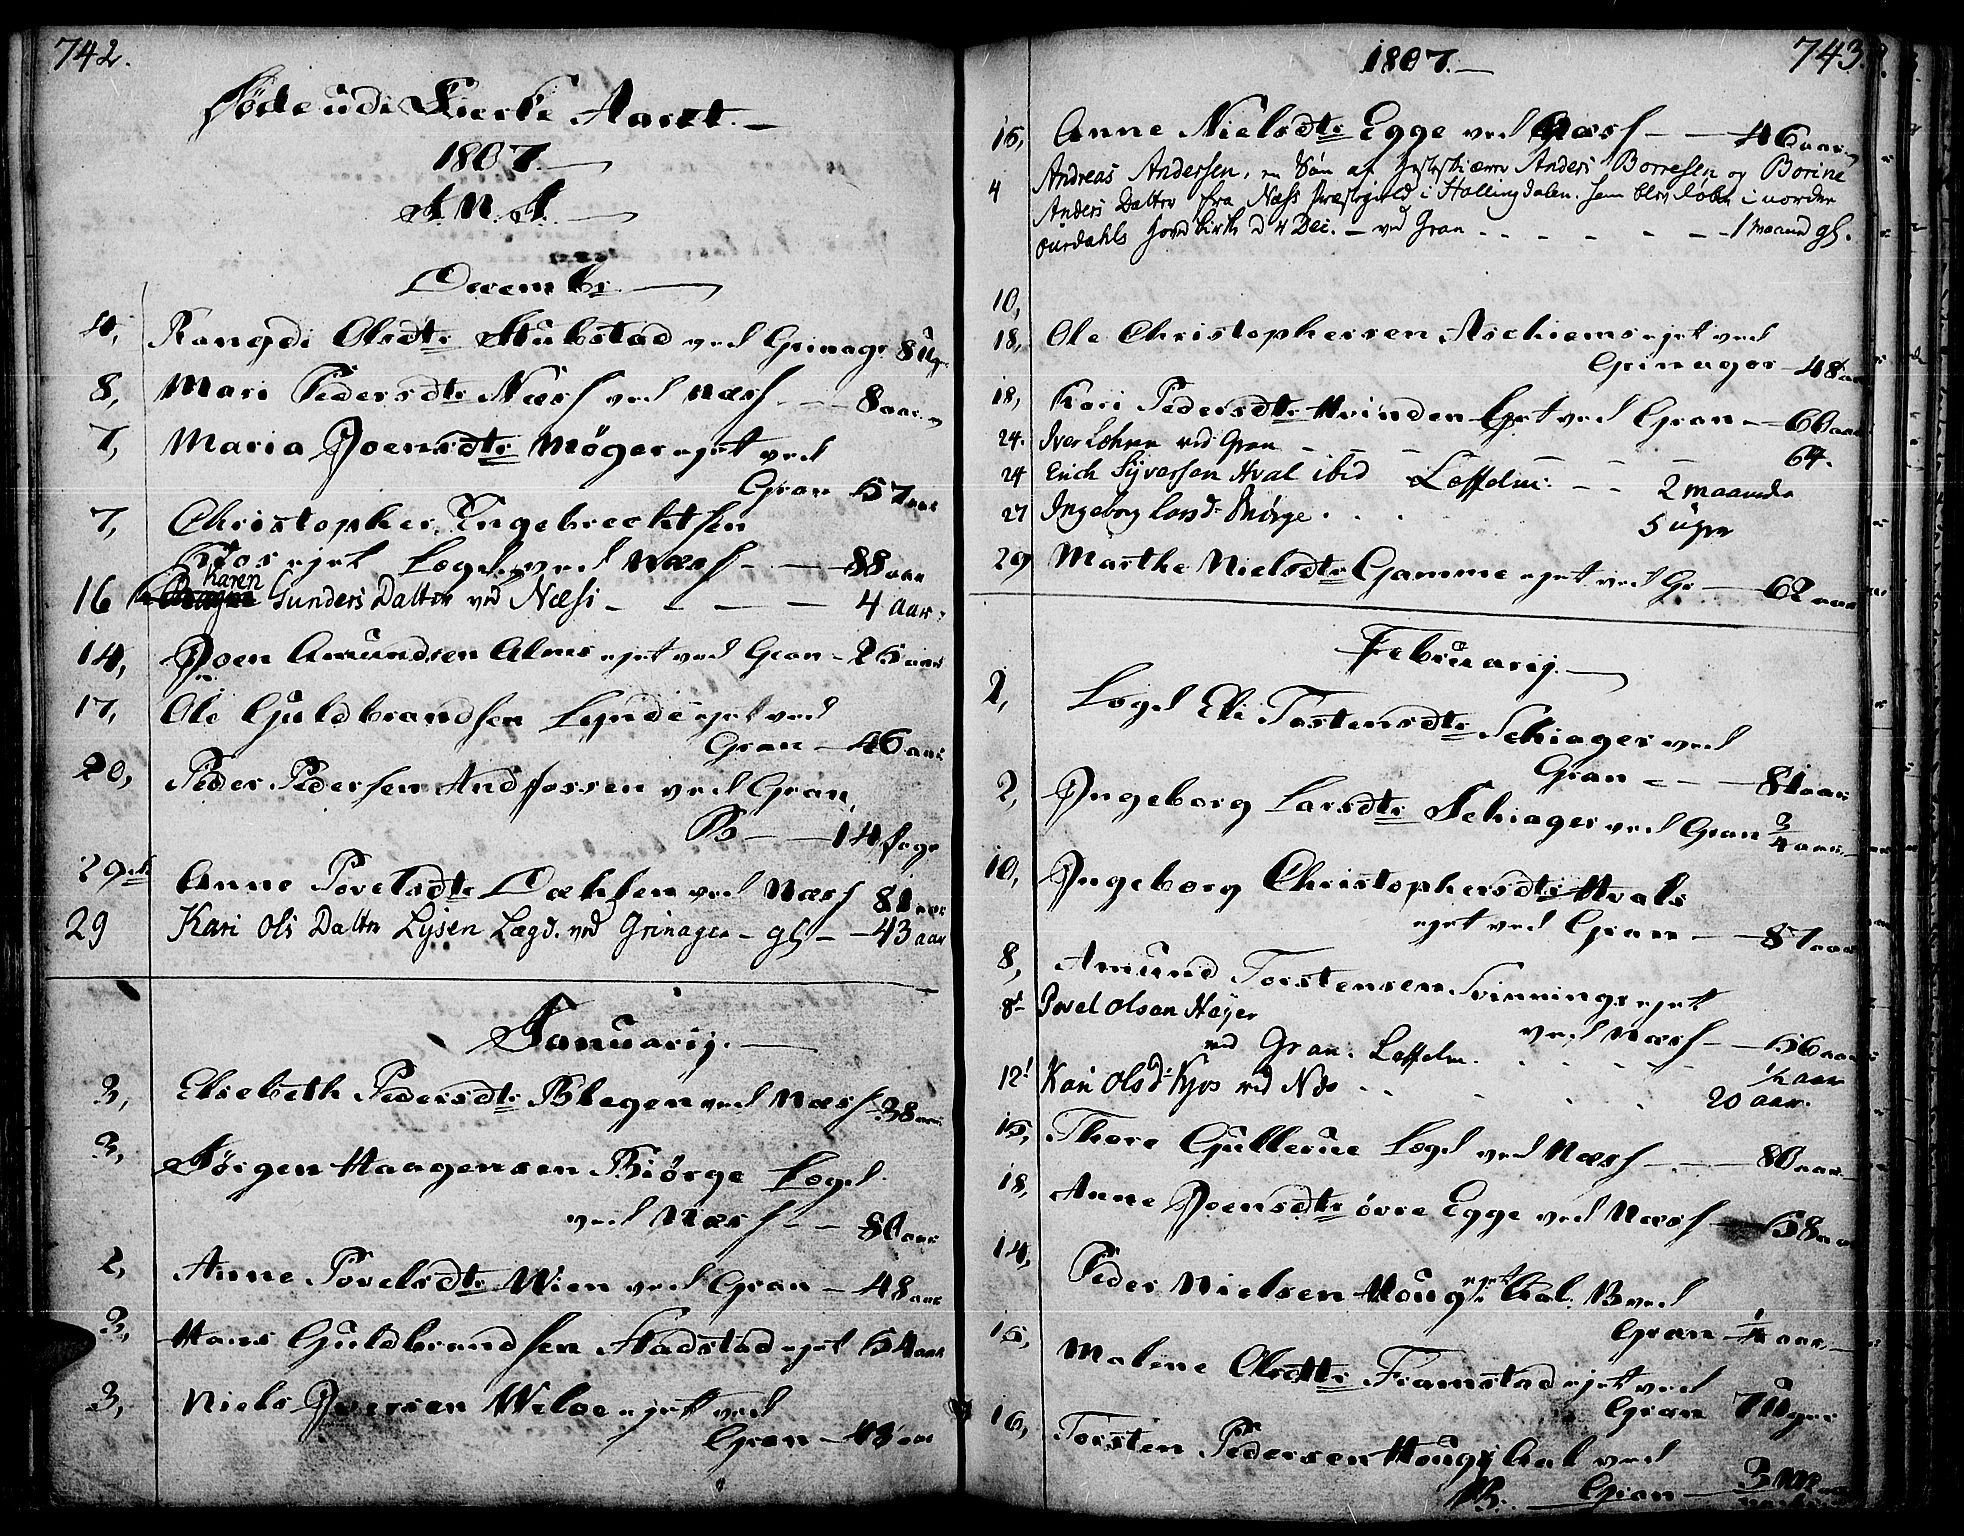 742.
Døde udi Kierke Aaret.
1807.
I. N. J.
Decembr.
4, Rangdi Olsdtr Stubstad ved Grinager 8 Uger
8, Mari Pedersdtr Næss ved Næss - 8 aar
7, Maria Joensdtr Møger ejet ved
Gran 57 aar
7, Christopher Engebrechtsen
Kjos ejet Lægd ved Næss - 88 aar
16 Karen Gunders Datter ved Næss - 4 aar
14, Joen Amundsen Alms ejet ved Gran - 25 aar
17, Ole Guldbrandsen Lynde ejet ved
Gran - 46 aar
20, Peder Pedersen Andfossen ved Gran,
B - 14 Dage
29de Anne Povelsdtr Dæhlen ved Næss 81 aar
29 Kari Ols Datter Lysen Lægd. ved Grinager - gl - 43 aar
Januarij.
3, Elsebeth Pedersdtr Blegen ved Næss 38 aar
3, Jørgen Haagensen Biørge Lægd
ved Næss - 80 aar
2, Anne Povelsdtr Wien ved Gran - 48 aar
3, Hans Guldbrandsen Stadstad ejet 54 aar
3, Niels Iversen Weloe ejet ved
Gran - 43 aar
743.
1807.
15, Anne Nielsdtr Egge ved Næss - 46 aar
4 Andreas Andersen, en Søn af Anders Borresen og Borine
Anders Datter fra Næss Præstegield i Hallingdalen. som blev døbt i nordre
ourdahls hoved kirke d 4 Dec. - ved Gran - 1 maaned gl.
10,
18, Ole Christophersen Aschiems ejet ved
Grinager - 48 aar
18, Kari Pedersdtr Hvinden Ejet ved Gran - 60 aar
24. Iver Lehren ved Gran - 64.
24 Erich Syversen Hval ibid Læsselm: - 2 maaneder
27 Ingeborg Larsd. Biørge . . . 5 uger
29 Marthe Nielsdtr Gamme ejet ved Gr - 62 aar
Februarij.
2, Lægd Eli Tostensdtr Schiager ved
Gran - 81 aar
2, Ingeborg Larsdtr Schiager ved Gran 3/4 aar
10, Ingeborg Christophersdtr Hvals
ejet ved Gran - 87 aar
8, Amund Torstensen Svinnings ejet
ved Næss - 56 aar
8d Povel Olsen Høyer
ved Gran. - 1/2 aar
12t Kari Olsd. Kjos ved Næs . . 20 aar.
15, Thore Gullerue Lægd ved Næss - 80 aar
18, Anne Joensdtr øvre Egge ved Næss - 58 aar
14, Peder Nielsen Hougsbal: ejet B ved
Gran - 1/4 aar
15, Malene Olsdtr Framstad ejet ved
Gran 7 Uger
16, Torsten Pedersen Hougsbal ved
B. Gran - 3 M